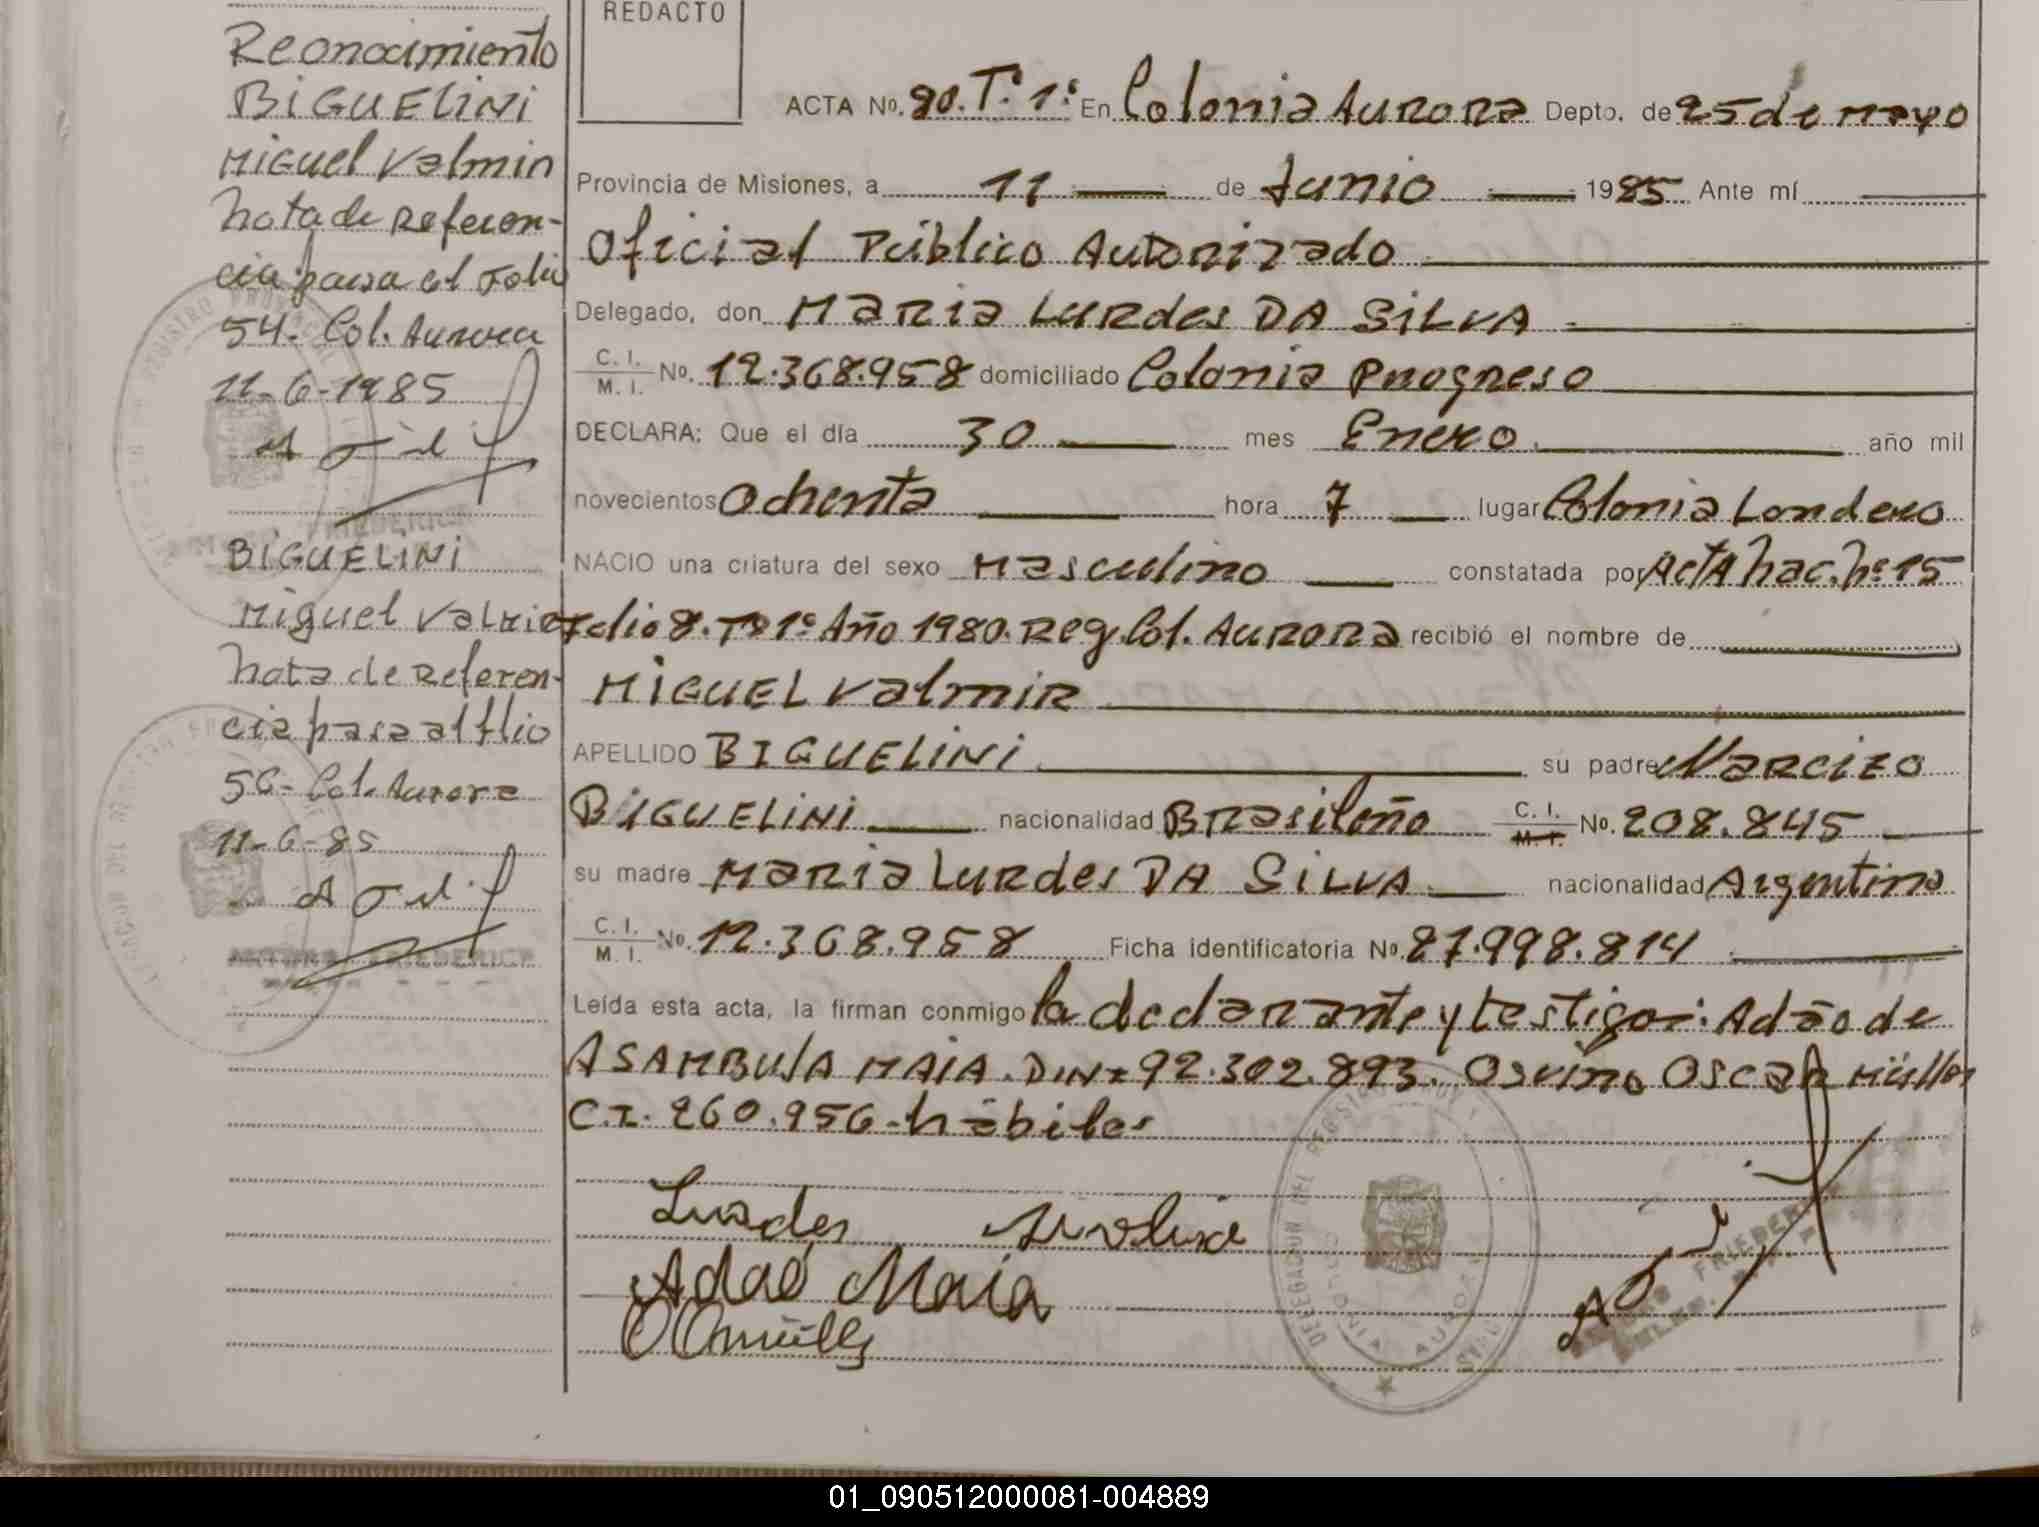 Reonocimiento
BIGUELINI
Miguel Valmin
Nota de Referen-
cia pasa al Folio
54- Col. Aurora
11-6-1985
BIGUELINI
Miguel Valmir
Nota de Referen-
cia pasa al flio
56- Col. Aurora
11-6-85
ARTURO FRIEDERICH
REDACTO
ACTA No. 90. T: 1: En Colonia Aurora Depto. de 25 de Mayo
Provincia de Misiones, a 11 de Junio 1985 Ante mí
Oficial Público Autorizado
Delegado, don Maria Lurdes DA SILVA
C. I. M. I. No. 12.368.958 domiciliado Colonia Progreso
DECLARA: Que el día 30 mes Enero año mil
novecientos ochenta hora 7 lugar Colonia Londero
NACIO una criatura del sexo Masculino constatada por Acta Nac. Nº 15
Folio 8. Tº 1º Año 1980. Reg. Col. Aurora recibió el nombre de
MIGUEL Valmir
APELLIDO BIGUELINI su padre Narcizo
BIGUELINI nacionalidad Brasileño C. I. M. I. No. 208.845
su madre Maria Lurdes DA SILVA nacionalidad Argentina
C. I. M. I. No. 12.368.958 Ficha identificatoria No. 27.998.814
Leída esta acta, la firman conmigo la declarante y testigos: Adão de
ASAMBUJA MAIA. DNI 92.302.893. Osvino Oscar Müller
C.I. 260.956- hábiles
Lurdes
Adaõ Maia
DELEGACION DEL REGISTRO
COLONIA AURORA
01_090512000081-004889